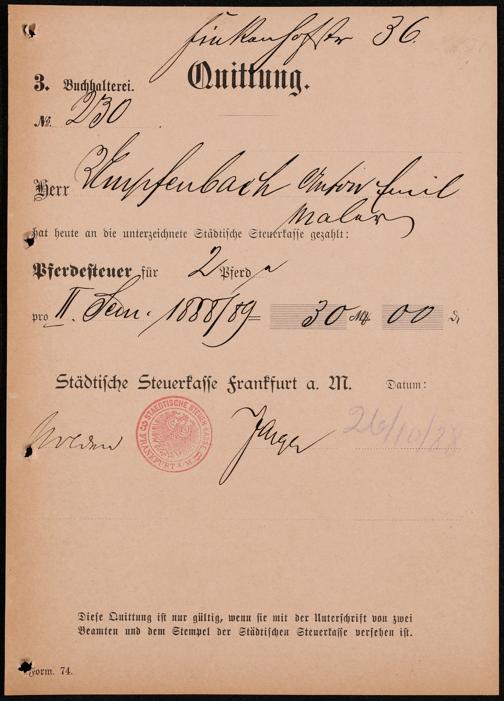 Finkenhofstr 36.
3. Buchhalterei. Quittung.
No. 230
Herr Umpfenbach Anton Emil
Maler
hat heute an die unterzeichnete Städtische Steuerkasse gezahlt:
Pferdesteuer für 2 Pferde
pro II. Sem. 1888/89 = 30 M 00 ₰
Städtische Steuerkasse Frankfurt a. M. Datum:
STAEDTISCHE STEUER-KASSE FRANKFURT A/M.
26/10/88
Diese Quittung ist nur gültig, wenn sie mit der Unterschrift von zwei
Beamten und dem Stempel der Städtischen Steuerkasse versehen ist.
Form. 74.